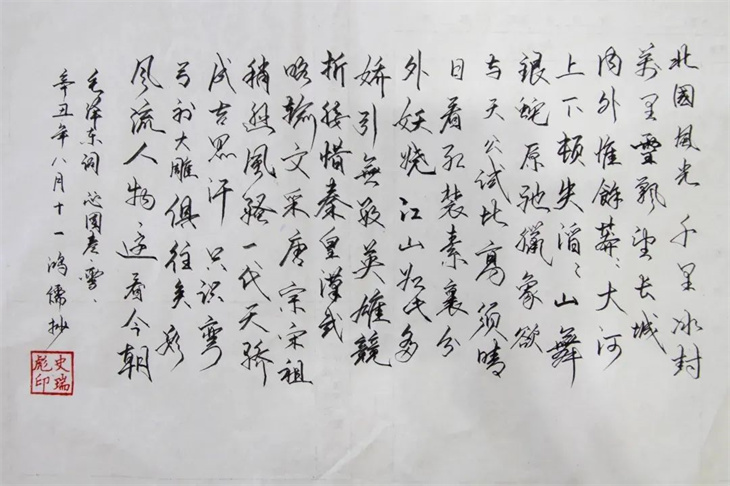 北國風光 千里冰封
萬里雪飘望长城
内外惟餘莽〻大河
上下顿失滔〻山舞
銀蛇原驰臘象欲
与天公试比高须晴
日看红装素裹分
外妖娆 江山如此多
娇引無数英雄競
折腰惜秦皇漢武
略输文采唐宗宋祖
稍逊風骚一代天骄
成吉思汗 只识彎
弓射大雕俱往矣数
风流人物还看今朝
毛泽东词 沁园春雪、
辛丑年八月十一 鸿儒抄
史瑞
彪印